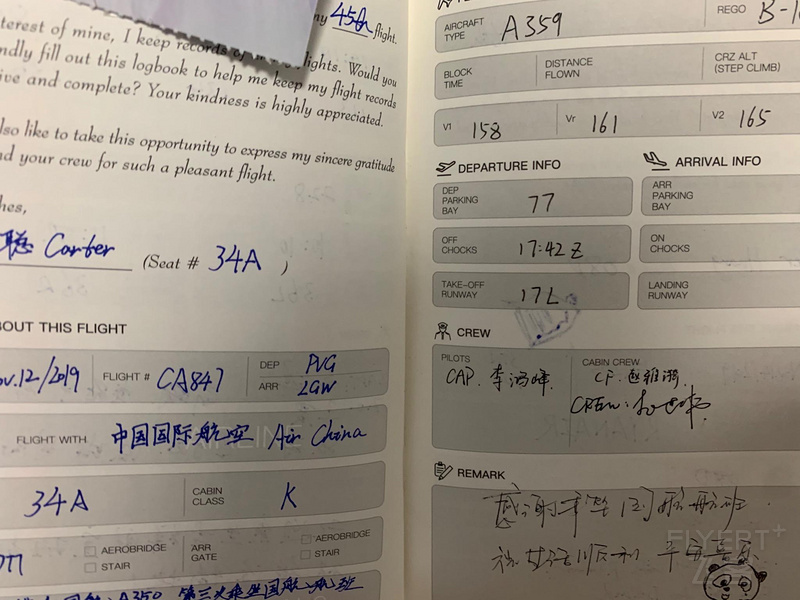 ny 45th flight.
terest of mine, I keep records of my flights. Would you
ndly fill out this logbook to help me keep my flight records
ive and complete? Your kindness is highly appreciated.
lso like to take this opportunity to express my sincere gratitude
nd your crew for such a pleasant flight.
hes,
聪 Carter
(Seat # 34A )
BOUT THIS FLIGHT
ov.12/2019
FLIGHT # CA847
DEP PVG
ARR LGW
FLIGHT WITH 中国国际航空 Air China
34A
CABIN CLASS K
AEROBRIDGE
STAIR
ARR GATE
AEROBRIDGE
STAIR
A350 第三次乘坐国航航班
AIRCRAFT TYPE A359
REGO B-1
BLOCK TIME
DISTANCE FLOWN
CRZ ALT (STEP CLIMB)
V1 158
Vr 161
V2 165
DEPARTURE INFO
DEP PARKING BAY 77
OFF CHOCKS 17:42 Z
TAKE-OFF RUNWAY 17L
ARRIVAL INFO
ARR PARKING BAY
ON CHOCKS
LANDING RUNWAY
CREW
PILOTS
CAP. 李鸿峰.
CABIN CREW
CF. 赵雅漪.
CREW:
REMARK
感谢乘坐国航航班
祝 顺利 平安喜乐
FLYERT+